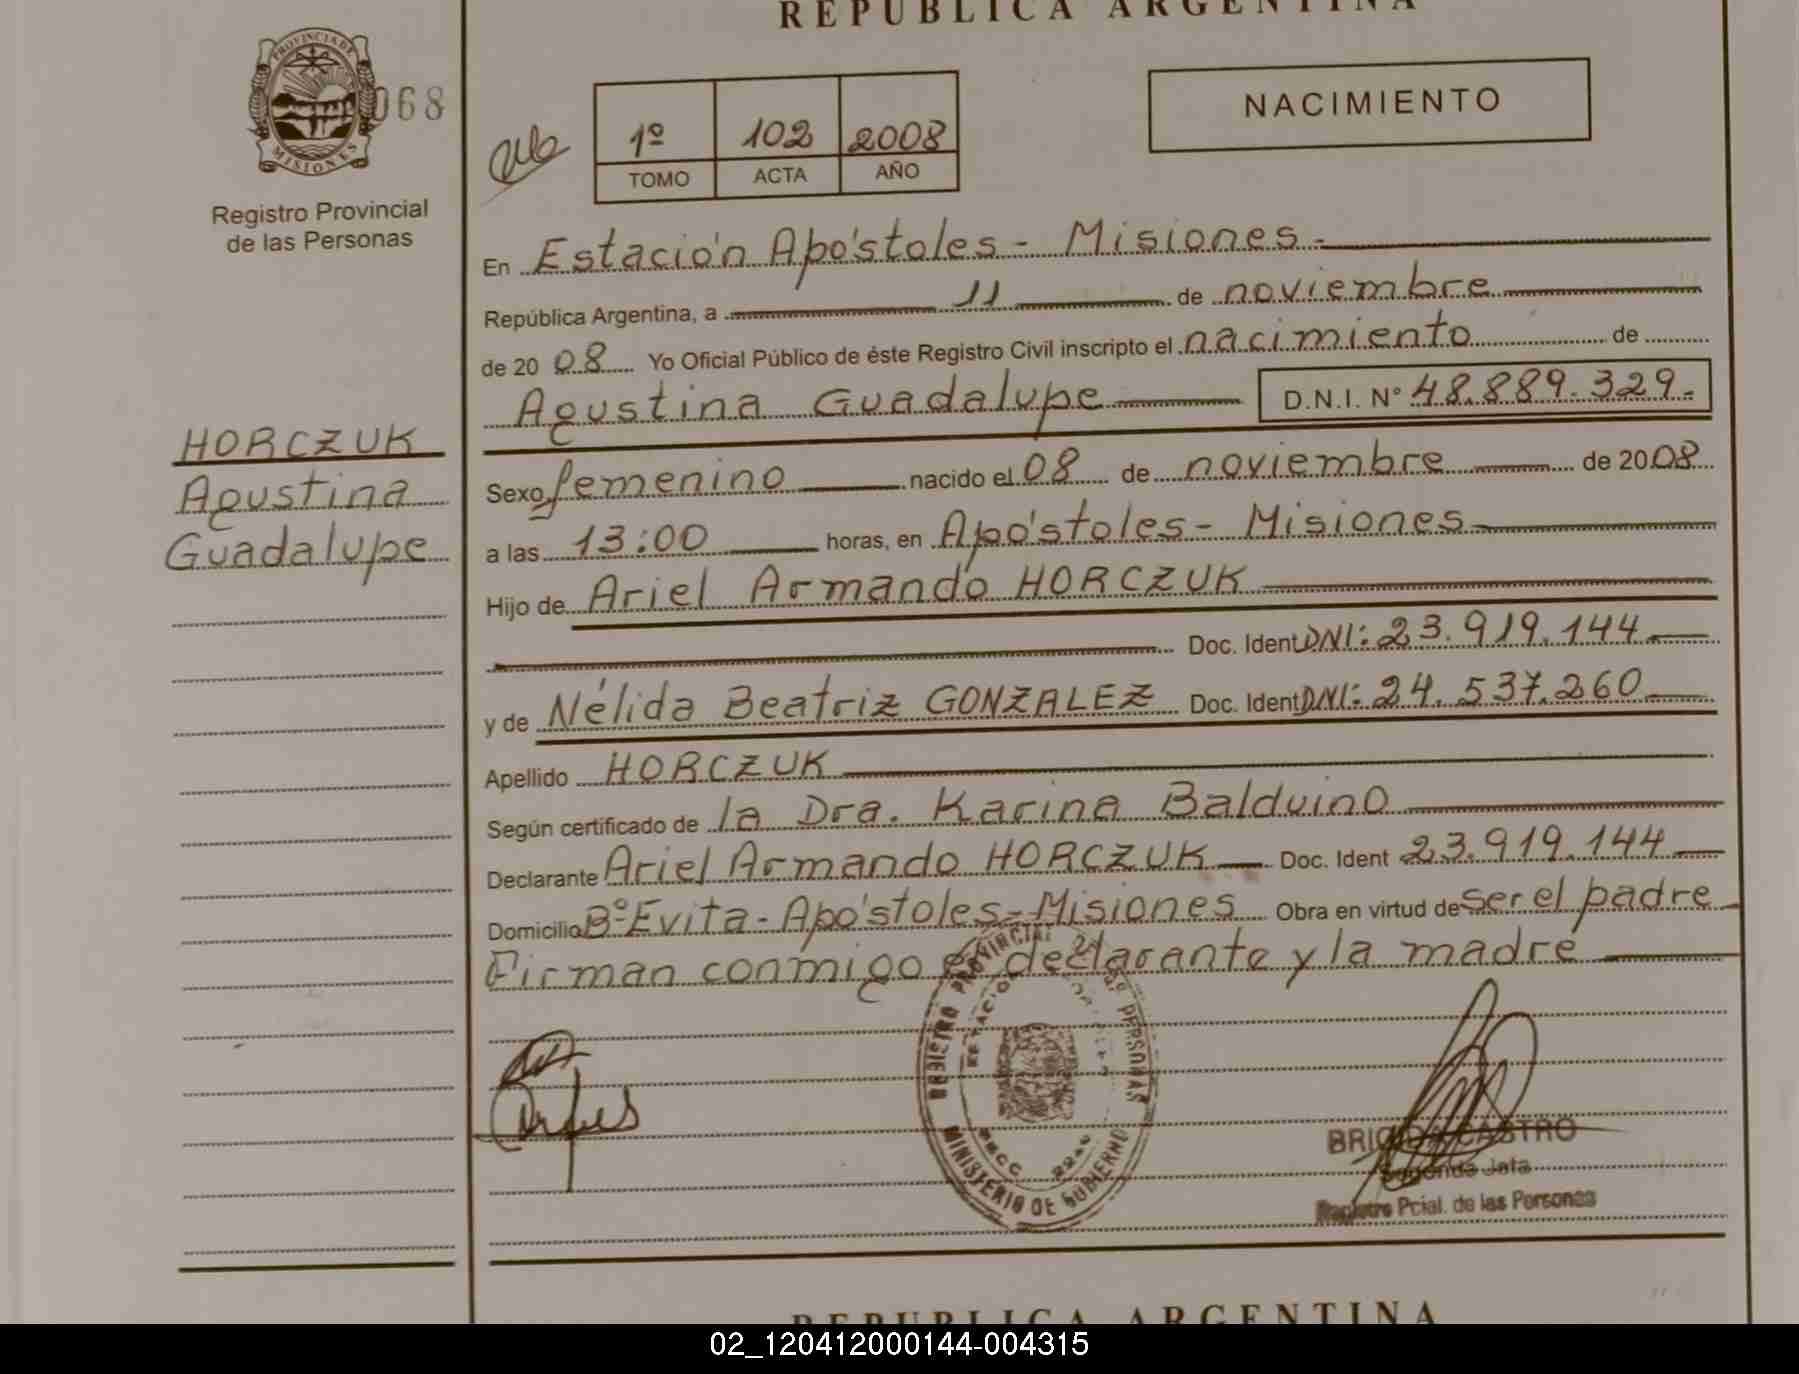 REPUBLICA ARGENTINA
PROVINCIA DE
MISIONES
068
Registro Provincial
de las Personas
1º 102 2008
TOMO ACTA AÑO
NACIMIENTO
En Estación Apóstoles - Misiones -
República Argentina, a 11 de noviembre
de 20 08 Yo Oficial Público de éste Registro Civil inscripto el nacimiento de
Agustina Guadalupe D.N.I. Nº 48.889.329.-
HORCZUK
Agustina
Guadalupe
Sexo femenino nacido el 08 de noviembre de 20 08
a las 13:00 horas, en Apóstoles - Misiones
Hijo de Ariel Armando HORCZUK
Doc. Ident DNI: 23.919.144
y de Nélida Beatriz GONZALEZ Doc. Ident DNI: 24.537.260
Apellido HORCZUK
Según certificado de la Dra. Karina Balduino
Declarante Ariel Armando HORCZUK Doc. Ident 23.919.144
Domicilio Bº Evita - Apóstoles - Misiones Obra en virtud de ser el padre
Firman conmigo el declarante y la madre
REGISTRO PROVINCIAL DE LAS PERSONAS
MINISTERIO DE GOBIERNO
BRIGIDA CASTRO
Segunda Jefa
Registro Pcial. de las Personas
REPUBLICA ARGENTINA
02_120412000144-004315